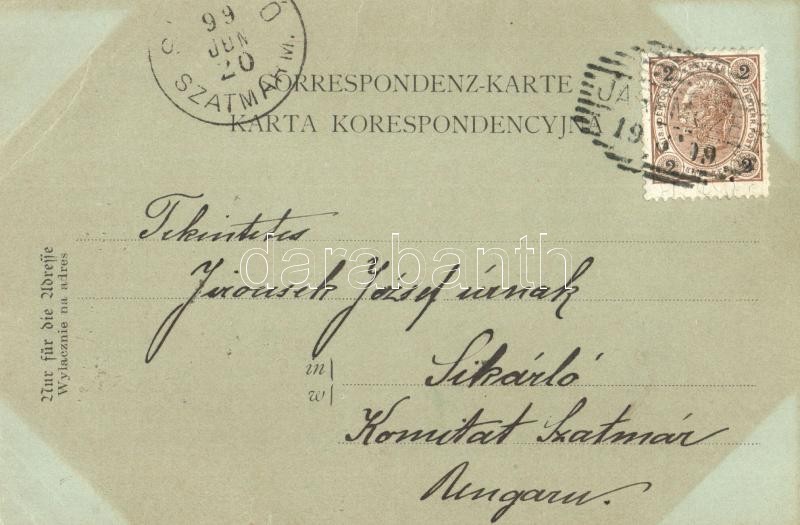 99
JUN
20
SZATMÁR M.
CORRESPONDENZ-KARTE
KARTA KORESPONDENCYJNA
2 2
2 2
19
99
Tekintetes
Jirousek József úrnak
in
w
Sikárló
Komitat Szatmár
Ungarn.
Nur für die Adresse
Wyłacznie na adres
darabanth